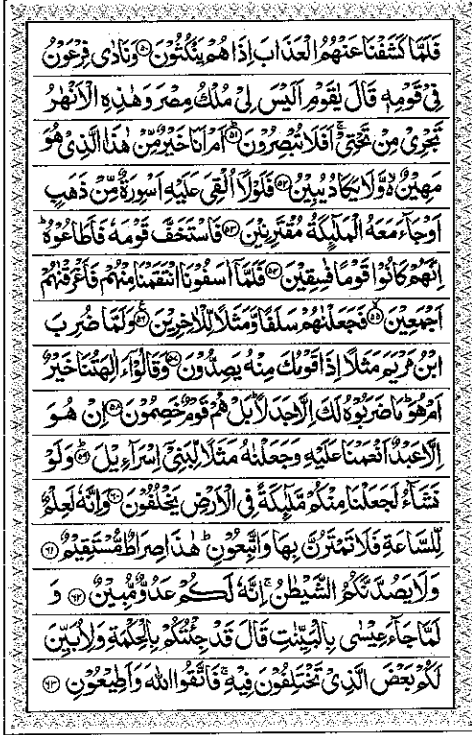 فَلَمَّا كَشَفْنَا عَنْهُمُ الْعَذَابَ اِذَا هُمْ يَنْكُثُوْنَ ۝۵۰ وَنَادٰى فِرْعَوْنُ
فِيْ قَوْمِهٖ قَالَ يٰقَوْمِ اَلَيْسَ لِيْ مُلْكُ مِصْرَ وَهٰذِهِ الْاَنْهٰرُ
تَجْرِيْ مِنْ تَحْتِيْ ۚ اَفَلَا تُبْصِرُوْنَ ۝۵۱ اَمْ اَنَا خَيْرٌ مِّنْ هٰذَا الَّذِيْ هُوَ
مَهِيْنٌ ۙ وَّلَا يَكَادُ يُبِيْنُ ۝۵۲ فَلَوْلَاۤ اُلْقِيَ عَلَيْهِ اَسْوِرَةٌ مِّنْ ذَهَبٍ
اَوْ جَآءَ مَعَهُ الْمَلٰٓئِكَةُ مُقْتَرِنِيْنَ ۝۵۳ فَاسْتَخَفَّ قَوْمَهٗ فَاَطَاعُوْهُ ؕ
اِنَّهُمْ كَانُوْا قَوْمًا فٰسِقِيْنَ ۝۵۴ فَلَمَّاۤ اٰسَفُوْنَا انْتَقَمْنَا مِنْهُمْ فَاَغْرَقْنٰهُمْ
اَجْمَعِيْنَ ۝۵۵ فَجَعَلْنٰهُمْ سَلَفًا وَّمَثَلًا لِّلْاٰخِرِيْنَ ۝۵۶ وَلَمَّا ضُرِبَ
ابْنُ مَرْيَمَ مَثَلًا اِذَا قَوْمُكَ مِنْهُ يَصِدُّوْنَ ۝۵۷ وَقَالُوْۤا ءَاٰلِهَتُنَا خَيْرٌ
اَمْ هُوَ ؕ مَا ضَرَبُوْهُ لَكَ اِلَّا جَدَلًا ؕ بَلْ هُمْ قَوْمٌ خَصِمُوْنَ ۝۵۸ اِنْ هُوَ
اِلَّا عَبْدٌ اَنْعَمْنَا عَلَيْهِ وَجَعَلْنٰهُ مَثَلًا لِّبَنِيْۤ اِسْرَآءِيْلَ ۝۵۹ وَلَوْ
نَشَآءُ لَجَعَلْنَا مِنْكُمْ مَّلٰٓئِكَةً فِي الْاَرْضِ يَخْلُفُوْنَ ۝۶۰ وَاِنَّهٗ لَعِلْمٌ
لِّلسَّاعَةِ فَلَا تَمْتَرُنَّ بِهَا وَاتَّبِعُوْنِ ؕ هٰذَا صِرَاطٌ مُّسْتَقِيْمٌ ۝۶۱
وَلَا يَصُدَّنَّكُمُ الشَّيْطٰنُ ۚ اِنَّهٗ لَكُمْ عَدُوٌّ مُّبِيْنٌ ۝۶۲ وَ
لَمَّا جَآءَ عِيْسٰى بِالْبَيِّنٰتِ قَالَ قَدْ جِئْتُكُمْ بِالْحِكْمَةِ وَلِاُبَيِّنَ
لَكُمْ بَعْضَ الَّذِيْ تَخْتَلِفُوْنَ فِيْهِ ۚ فَاتَّقُوا اللّٰهَ وَاَطِيْعُوْنِ ۝۶۳